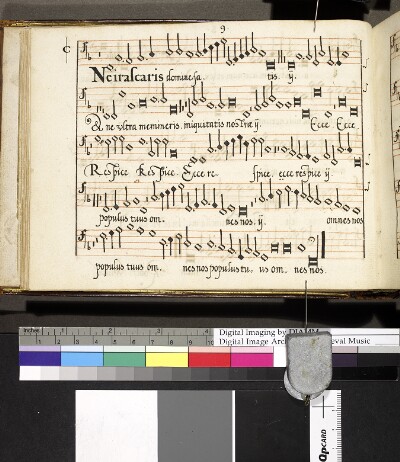 9
C
Neirascaris domine sa. tis. ij.
& ne ultra memineris. iniquitatis nostre ij. Ecce Ecce.
Respice Respice. Ecce re- spice. ecce respice ij.
populus tuus om. nes nos. ij. omnes nos
populus tuus om. nes nos populus tu. us om. nes nos.
Inches 1 2 3 4
Digital Imaging by DIAMM
Digital Image Arc eval Music
1 2 3 4 5 6 7 8 9 10
QPCARD